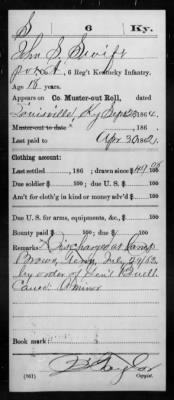 S 6 Ky.
John S. Swift
, 6 Reg't Kentucky Infantry.
Age 18 years.
Appears on Co. Muster-out Roll, dated
Louisville, Ky Sept 23, 1864.
Muster-out to date , 186 .
Last paid to Apr 30, 1862.
Clothing account:
Last settled , 186 ; drawn since $ 100
Due soldier $ 100; due U. S. $ 100
Am't for cloth'g in kind or money adv'd $ 100
Due U. S. for arms, equipments, &c., $ 100
Bounty paid $ 100; due $ 100
Remarks: Discharged at Camp
Tenn, July 24/62,
by order of Gen'l Buell
Cause: A minor
Book mark:
(361) Copyist.